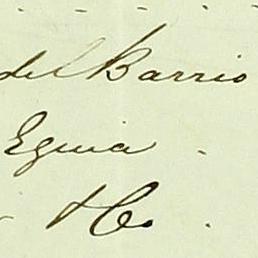 del Barrio
Eguia
& Co.